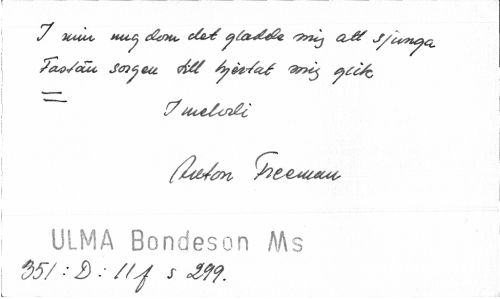 I min ungdom det gladde mig att sjunga
Fastän sorgen till hjertat mig gick
=
1 melodi
Anton Freeman
ULMA Bondeson Ms
351 : D : 11 f s 299.